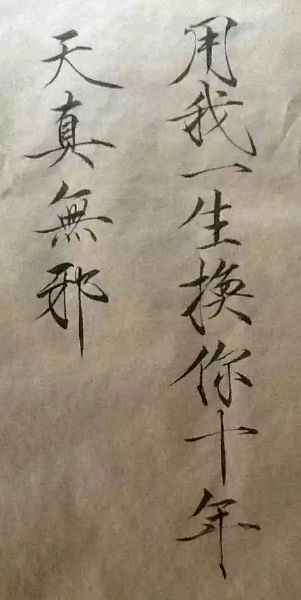 用我一生換你十年
天真無邪